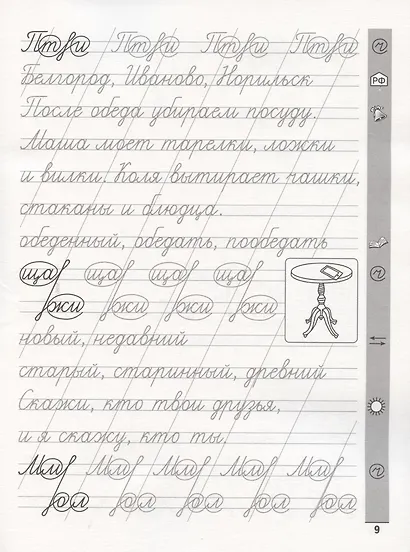 Птви Птви Птви Птви
Белгород, Иваново, Норильск
РФ
После обеда убираем посуду.
Маша моет тарелки, ложки
и вилки. Коля вытирает чашки,
стаканы и блюдца.
обеденный, обедать, пообедать
ща ща ща ща
жи жи жи жи
новый, недавний
старый, старинный, древний
Скажи, кто твои друзья,
и я скажу, кто ты.
9